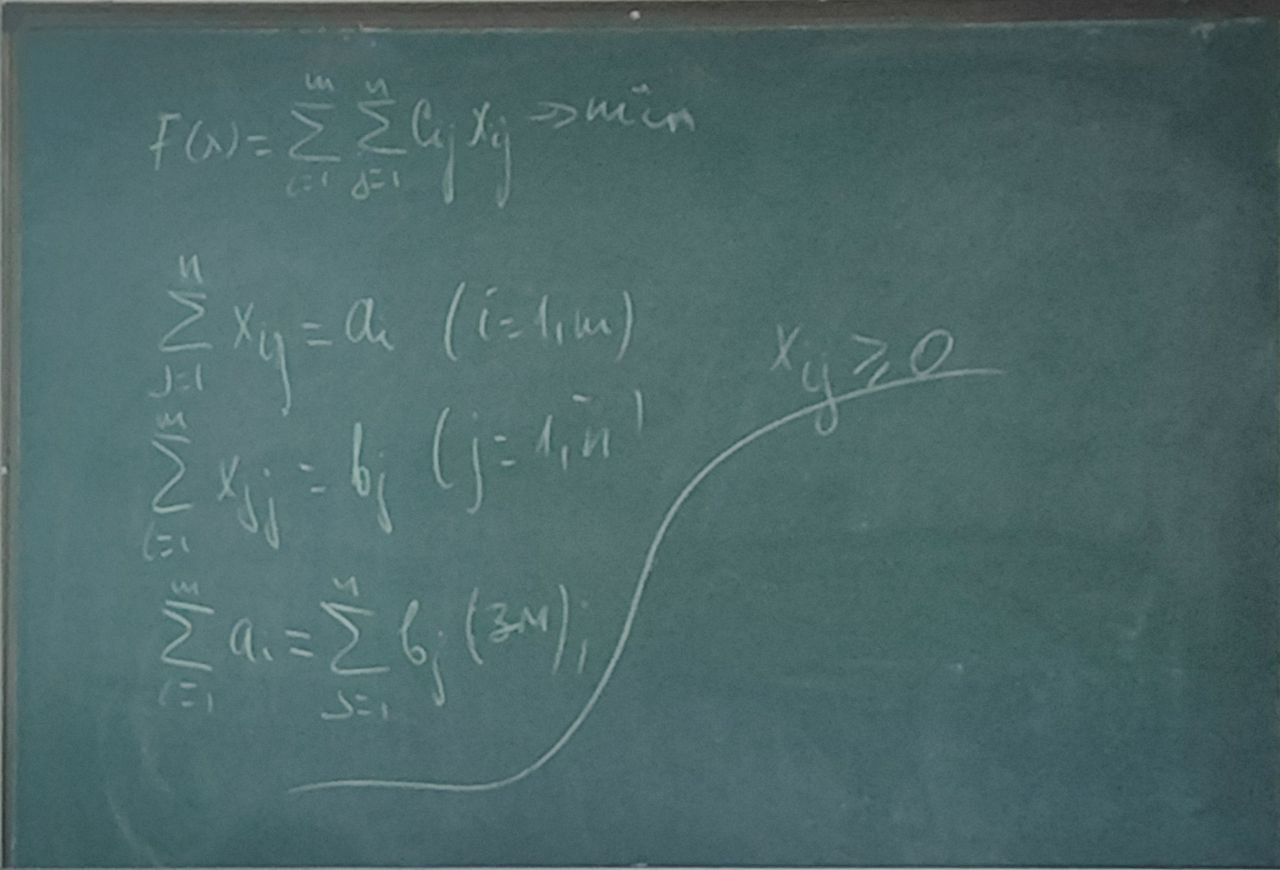 F(x) = \sum_{i=1}^{m} \sum_{j=1}^{n} C_{ij} x_{ij} => min
\sum_{j=1}^{n} x_{ij} = a_i (i = 1, m)
x_{ij} ⩾ 0
\sum_{i=1}^{m} x_{ij} = b_j (j = 1, n)
\sum_{i=1}^{m} a_i = \sum_{j=1}^{n} b_j (ЗМ);